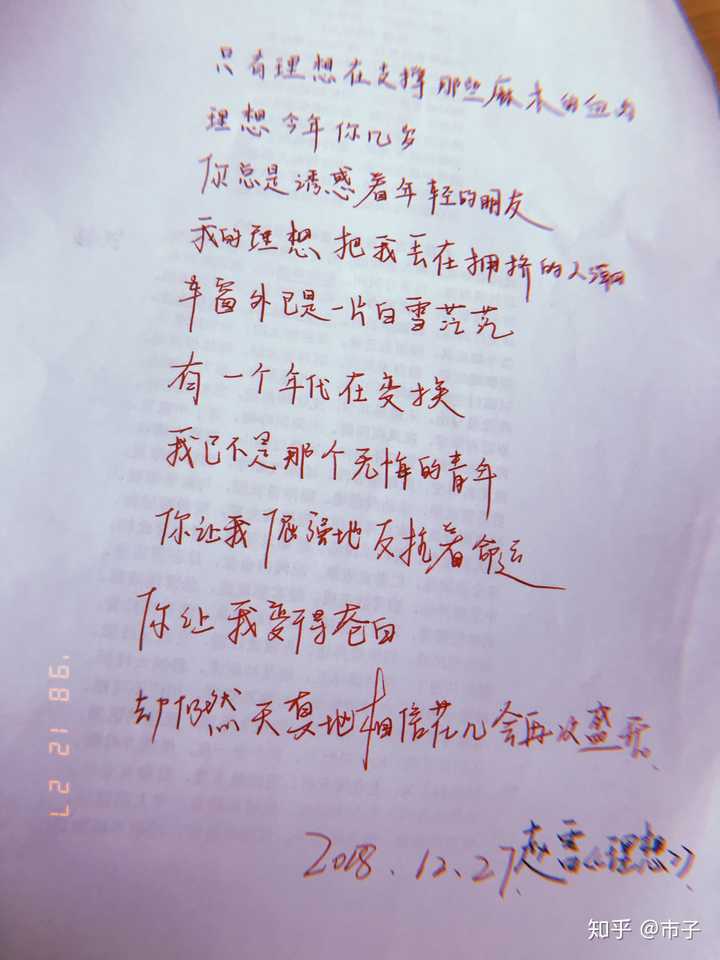 只有理想在支撑那些麻木的血肉
理想今年你几岁
你总是诱惑着年轻的朋友
我的理想把我丢在拥挤的人潮
车窗外已是一片白雪茫茫
有一个年代在变换
我已不是那个无悔的青年
你让我倔强地反抗着命运
你让我变得苍白
却仍然天真地相信花儿会再次盛开
2018.12.27 赵雷《理想》
'98 12 27
知乎 @市子